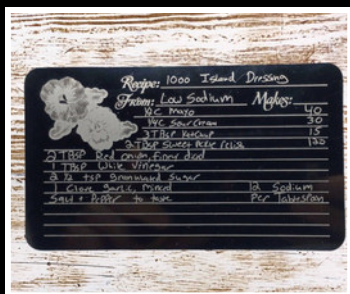 Recipe: 1000 Island Dressing
From: Low Sodium Makes:
Mayo 40
1/4 C Sour Cream 30
3 TBSP Ketchup 15
2 TBSP Sweet Pickle Relish 120
2 TBSP Red onion, finely diced
1 TBSP White Vinegar
2 1/2 tsp Granulated Sugar
1 Clove Garlic, minced 12 Sodium
Salt + Pepper to taste Per Tablespoon